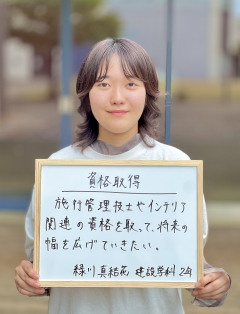 資格取得
施行管理技士やインテリア
関連の資格を取って、将来の
幅を広げていきたい。
緑川 真結花 建設学科 2年